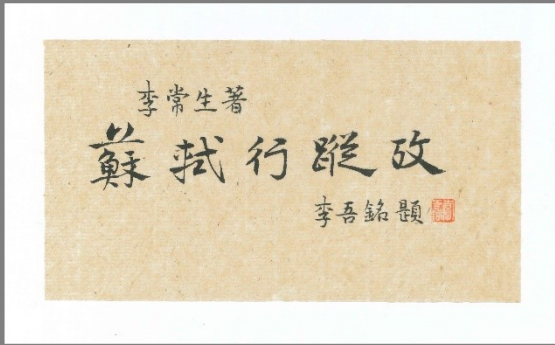 李常生著
蘇軾行蹤攷
李吾銘題